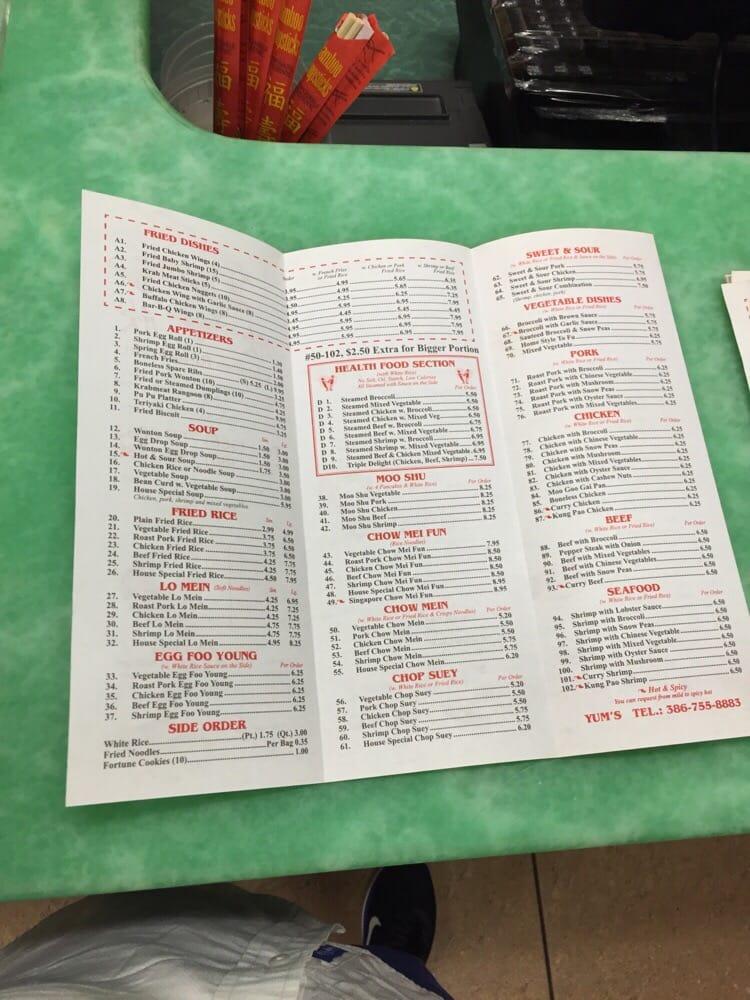 amboo
sticks
福
FRIED DISHES
A1. Fried Chicken Wings (4)
A2. Fried Baby Shrimp (15)
A3. Fried Jumbo Shrimp (5)
A4. Krab Meat Sticks (5)
A5. Fried Chicken Nuggets (10)
A6. Chicken Wing with Garlic Sauce (8)
A7. Buffalo Chicken Wings (8)
A8. Bar-B-Q Wings (8)
w. French Fries or Fried Rice
w. Chicken or Pork Fried Rice
w. Shrimp or Beef Fried Rice
APPETIZERS
1. Pork Egg Roll (1)
2. Shrimp Egg Roll (1)
3. Spring Egg Roll (3)
4. French Fries
5. Boneless Spare Ribs (S) 5.25 (L) 9.95
6. Fried Pork Wonton (10)
7. Fried or Steamed Dumplings (10)
8. Krabmeat Rangoon (8)
9. Pu Pu Platter
10. Teriyaki Chicken (4)
11. Fried Biscuit
SOUP
12. Wonton Soup 1.50 3.00
13. Egg Drop Soup 1.50 3.00
14. Wonton Egg Drop Soup 1.50 3.00
15. Hot & Sour Soup 1.50 3.00
16. Chicken Rice or Noodle Soup 1.75 3.00
17. Vegetable Soup 3.00
18. Bean Curd w. Vegetable Soup 3.00
19. House Special Soup 5.95
Chicken, pork, shrimp and mixed vegetables
FRIED RICE
20. Plain Fried Rice 2.99 4.99
21. Vegetable Fried Rice 3.75 6.50
22. Roast Pork Fried Rice 3.75 6.50
23. Chicken Fried Rice 3.75 6.50
24. Beef Fried Rice 4.25 7.25
25. Shrimp Fried Rice 4.25 7.25
26. House Special Fried Rice 4.50 7.95
LO MEIN (Soft Noodles) Sm. Lg.
27. Vegetable Lo Mein 4.25 6.95
28. Roast Pork Lo Mein 4.25 7.25
29. Chicken Lo Mein 4.25 7.25
30. Beef Lo Mein 4.75 7.75
31. Shrimp Lo Mein 4.75 7.75
32. House Special Lo Mein 4.95 8.25
EGG FOO YOUNG
(w. White Rice Sauce on the Side) Per Order
33. Vegetable Egg Foo Young 6.25
34. Roast Pork Egg Foo Young 6.25
35. Chicken Egg Foo Young 6.25
36. Beef Egg Foo Young 6.25
37. Shrimp Egg Foo Young 6.25
SIDE ORDER
White Rice (Pt.) 1.75 (Qt.) 3.00
Fried Noodles Per Bag 0.35
Fortune Cookies (10) 1.00
#50-102, $2.50 Extra for Bigger Portion
HEALTH FOOD SECTION
(with White Rice)
No Salt, Oil, Starch, Low Calories
All Steamed with Sauce on the Side
Per Order
D 1. Steamed Broccoli 5.50
D 2. Steamed Mixed Vegetable 5.50
D 3. Steamed Chicken w. Broccoli 6.50
D 4. Steamed Chicken w. Mixed Veg. 6.50
D 5. Steamed Beef w. Broccoli 6.75
D 6. Steamed Beef w. Mixed Vegetable 6.75
D 7. Steamed Shrimp w. Broccoli 6.95
D 8. Steamed Shrimp w. Mixed Vegetable 6.95
D 9. Steamed Beef & Chicken Mixed Vegetable 6.95
D10. Triple Delight (Chicken, Beef, Shrimp) 7.50
MOO SHU
(w. 4 Pancakes & White Rice)
38. Moo Shu Vegetable 8.25
39. Moo Shu Pork 8.25
40. Moo Shu Chicken 8.25
41. Moo Shu Beef 8.25
42. Moo Shu Shrimp 8.25
CHOW MEI FUN
(Rice Noodles)
43. Vegetable Chow Mei Fun 7.95
44. Roast Pork Chow Mei Fun 8.50
45. Chicken Chow Mei Fun 8.50
46. Beef Chow Mei Fun 8.50
47. Shrimp Chow Mei Fun 8.50
48. House Special Chow Mei Fun 8.95
49. Singapore Chow Mei Fun 8.95
CHOW MEIN
(w. White Rice or Fried Rice & Crispy Noodles) Per Order
50. Vegetable Chow Mein 5.20
51. Pork Chow Mein 5.50
52. Chicken Chow Mein 5.50
53. Beef Chow Mein 5.75
54. Shrimp Chow Mein 5.75
55. House Special Chow Mein 6.20
CHOP SUEY
(w. White Rice or Fried Rice) Per Order
56. Vegetable Chop Suey 5.20
57. Pork Chop Suey 5.50
58. Chicken Chop Suey 5.50
59. Beef Chop Suey 5.75
60. Shrimp Chop Suey 5.75
61. House Special Chop Suey 6.20
SWEET & SOUR
(w. White Rice or Fried Rice & Sauce on the Side)
62. Sweet & Sour Pork 5.75
63. Sweet & Sour Chicken 5.75
64. Sweet & Sour Shrimp 6.95
65. Sweet & Sour Combination 7.50
(Shrimp, chicken, pork)
VEGETABLE DISHES
(w. White Rice or Fried Rice)
66. Broccoli with Brown Sauce 5.75
67. Broccoli with Garlic Sauce 5.75
68. Sauteed Broccoli & Snow Peas 5.75
69. Home Style To Fu 5.75
70. Mixed Vegetable 5.75
PORK
(w. White Rice or Fried Rice)
71. Roast Pork with Broccoli 6.25
72. Roast Pork with Chinese Vegetable 6.25
73. Roast Pork with Mushroom 6.25
74. Roast Pork with Snow Peas 6.25
75. Roast Pork with Oyster Sauce 6.25
76. Roast Pork with Mixed Vegetables 6.25
CHICKEN
(w. White Rice or Fried Rice)
77. Chicken with Broccoli 6.25
78. Chicken with Chinese Vegetable 6.25
79. Chicken with Snow Peas 6.25
80. Chicken with Mushroom 6.25
81. Chicken with Mixed Vegetables 6.25
82. Chicken with Oyster Sauce 6.25
83. Chicken with Cashew Nuts 6.25
84. Moo Goo Gai Pan 6.25
85. Boneless Chicken 6.25
86. Curry Chicken 6.25
87. Kung Pao Chicken 6.25
BEEF
(w. White Rice or Fried Rice) Per Order
88. Beef with Broccoli 6.50
89. Pepper Steak with Onion 6.50
90. Beef with Mixed Vegetables 6.50
91. Beef with Chinese Vegetables 6.50
92. Beef with Snow Peas 6.50
93. Curry Beef 6.50
SEAFOOD
(w. White Rice or Fried Rice) Per Order
94. Shrimp with Lobster Sauce 6.50
95. Shrimp with Broccoli 6.50
96. Shrimp with Snow Peas 6.50
97. Shrimp with Chinese Vegetable 6.50
98. Shrimp with Mixed Vegetable 6.50
99. Shrimp with Oyster Sauce 6.50
100. Shrimp with Mushroom 6.50
101. Curry Shrimp 6.50
102. Kung Pao Shrimp 6.50
Hot & Spicy
You can request from mild to spicy hot
YUM'S TEL.: 386-755-8883